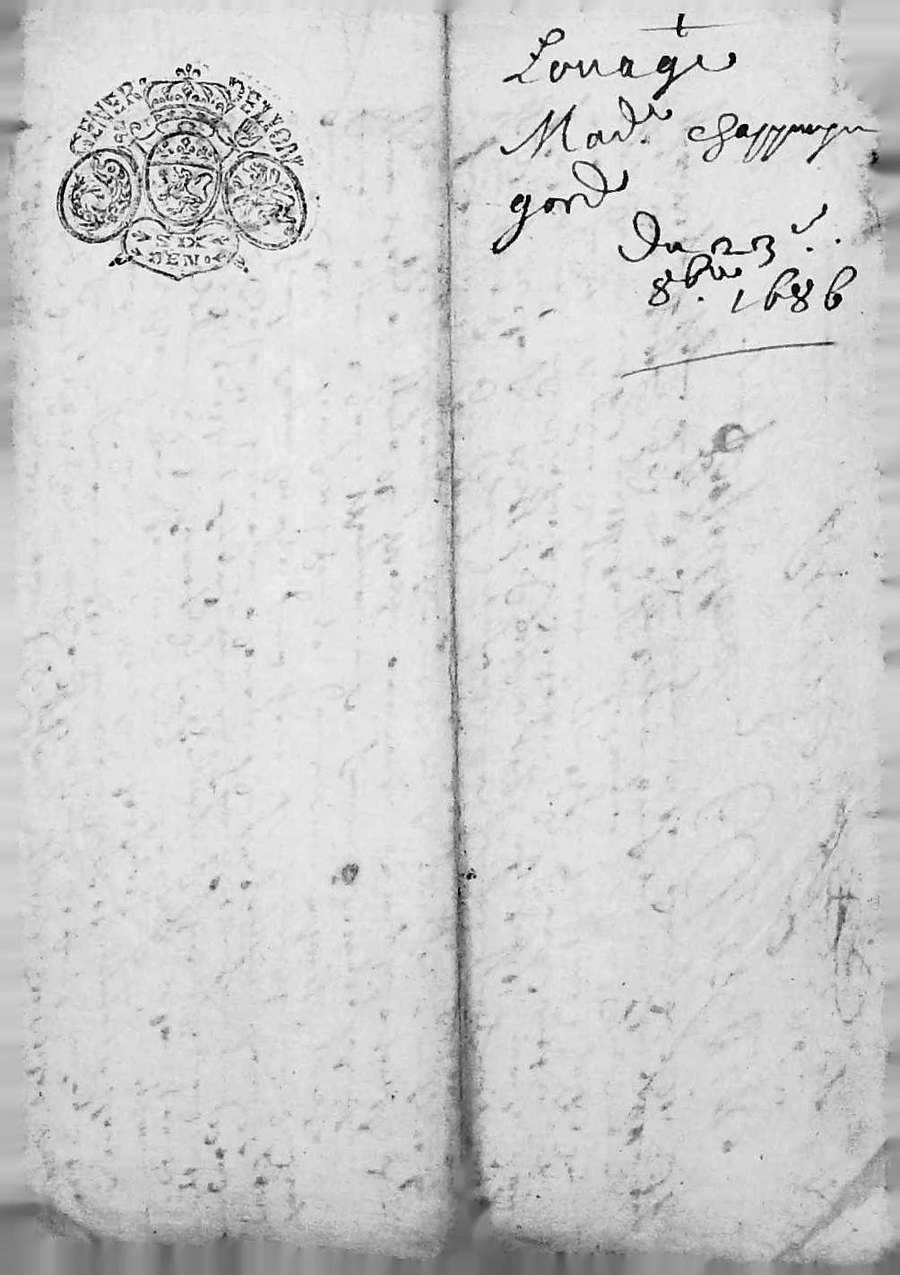 GENER. DE LYON
SIX
DEN.
Louage
Made chappuy
gord
Du 23e
8bre 1686